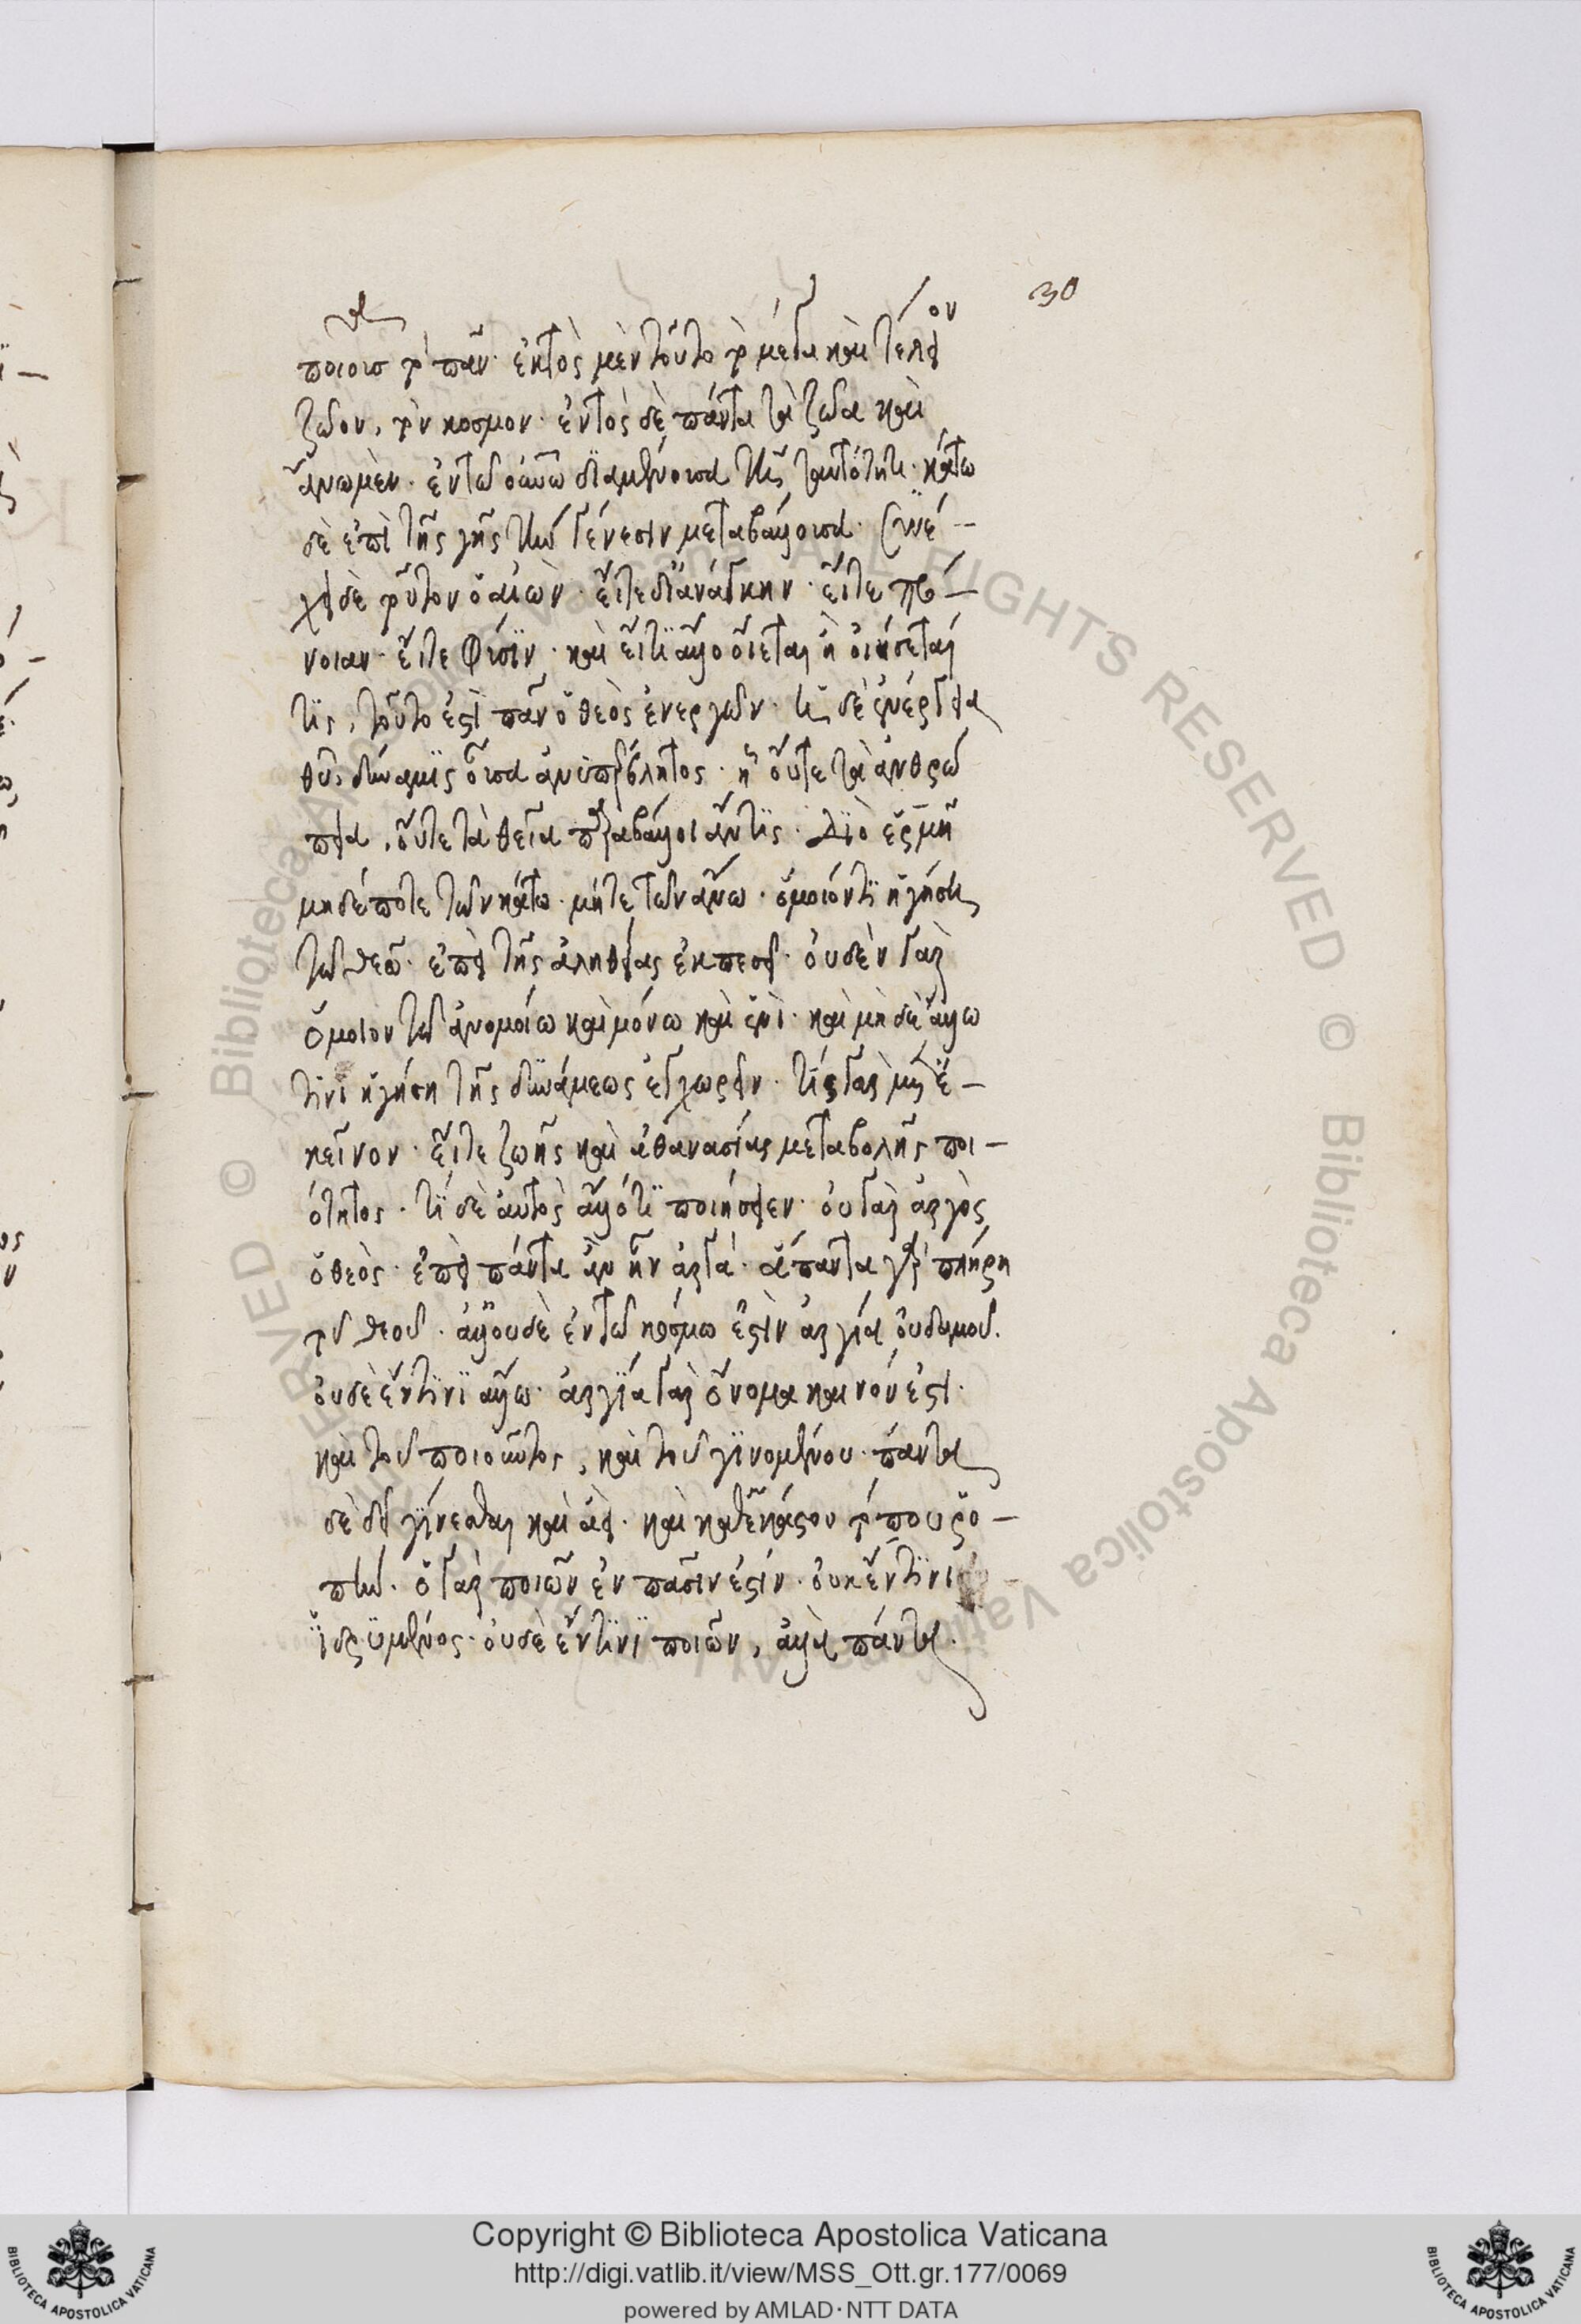 30
ποιοῦσα τὸ πᾶν· ἐκτὸς μὲν τοῦτο τὸ μέγα καὶ τέλειον
ζῶον, τὸν κόσμον· ἐντὸς δὲ πάντα τὰ ζῶα καὶ
ἄνω μὲν· ἐν τῶ οὐνῶ διαμένουσα τῇ ταυτότητι· κάτω
δὲ ἐπὶ τῆς γῆς τὴν γένεσιν μεταβάλλουσα· συνέ-
χει δὲ τοῦτον ὁ αἰών· εἴτε δι' ἀνάγκην· εἴτε πρό-
νοιαν· εἴτε φύσιν· καὶ εἴ τι ἄλλο οἴεται ἢ οἰήσεταί
τις, τοῦτο ἐστὶ πᾶν ὁ θεὸς ἐνεργῶν· ἡ δὲ ἐνέργεια
θῦ, δύναμις οὖσα ἀνυπέρβλητος· ᾗ οὔτε τὰ ἀνθρώ
πεια, οὔτε τὰ θεῖα παραβάλλοι ἄν τις· διὸ ἑρμῆ
μηδέποτε τῶν κάτω· μήτε τῶν ἄνω· ὅμοιόν τι ἡγήσῃ
τῶ θεῶ· ἐπεὶ τῆς ἀληθείας ἐκπεσεῖ· οὐδὲν γὰρ
ὅμοιον τῶ ἀνομοίω καὶ μόνω καὶ ἑνὶ· καὶ μὴ δὲ ἄλλω
τινὶ ἡγήσῃ τῆς δυνάμεως ἐγχωρεῖν· τίς γὰρ μετ' ἐ-
κεῖνον· εἴτε ζωῆς καὶ ἀθανασίας μεταβολῆς ποι-
ότητος· τί δὲ αὐτὸς ἄλλό τι ποιήσειεν· οὐ γὰρ ἀργὸς
ὁ θεὸς· ἐπεὶ πάντα ἂν ἦν ἀργά· ἅπαντα γὰρ πλήρη
τοῦ θεοῦ· ἀλλ' οὐδὲ ἐν τῶ κόσμω ἐστὶν ἀργία οὐδαμοῦ.
οὐδὲ ἔν τινι ἄλλω· ἀργία γὰρ ὄνομα κενόν ἐστι·
καὶ τοῦ ποιοῦντος, καὶ τοῦ γινομένου· πάντα
δὲ δεῖ γίνεσθαι καὶ ἀεὶ· καὶ καθ' ἑκάστου τόπου ῥο-
πήν· ὁ γὰρ ποιῶν ἐν πᾶσιν ἐστίν· οὐκ ἔν τινι
ἱδρυμένος· οὐδὲ ἔν τινι ποιῶν, ἀλλὰ πάντα·
© Biblioteca Apostolica Vaticana ALL RIGHTS RESERVED
Copyright © Biblioteca Apostolica Vaticana
http://digi.vatlib.it/view/MSS_Ott.gr.177/0069
powered by AMLAD·NTT DATA
BIBLIOTECA APOSTOLICA VATICANA
BIBLIOTECA APOSTOLICA VATICANA